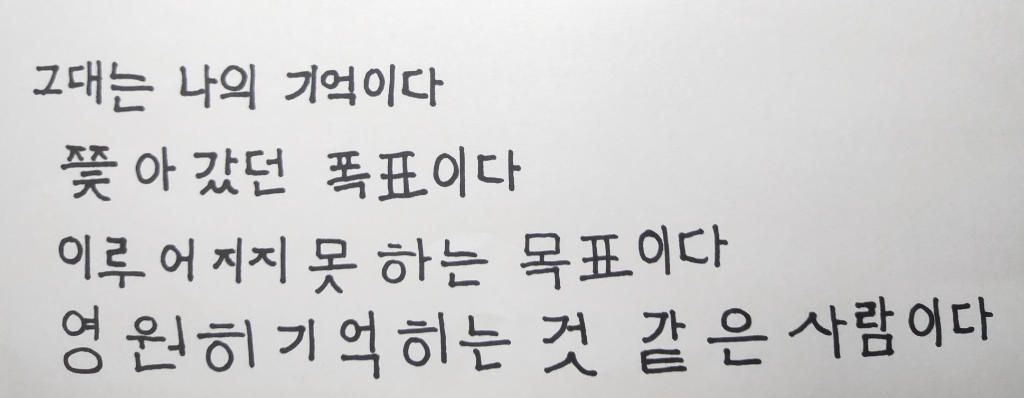 그대는 나의 기억이다
쫓아 갔던 폭표이다
이루어지지 못 하는 목표이다
영원히 기억히는 것 같은 사람이다